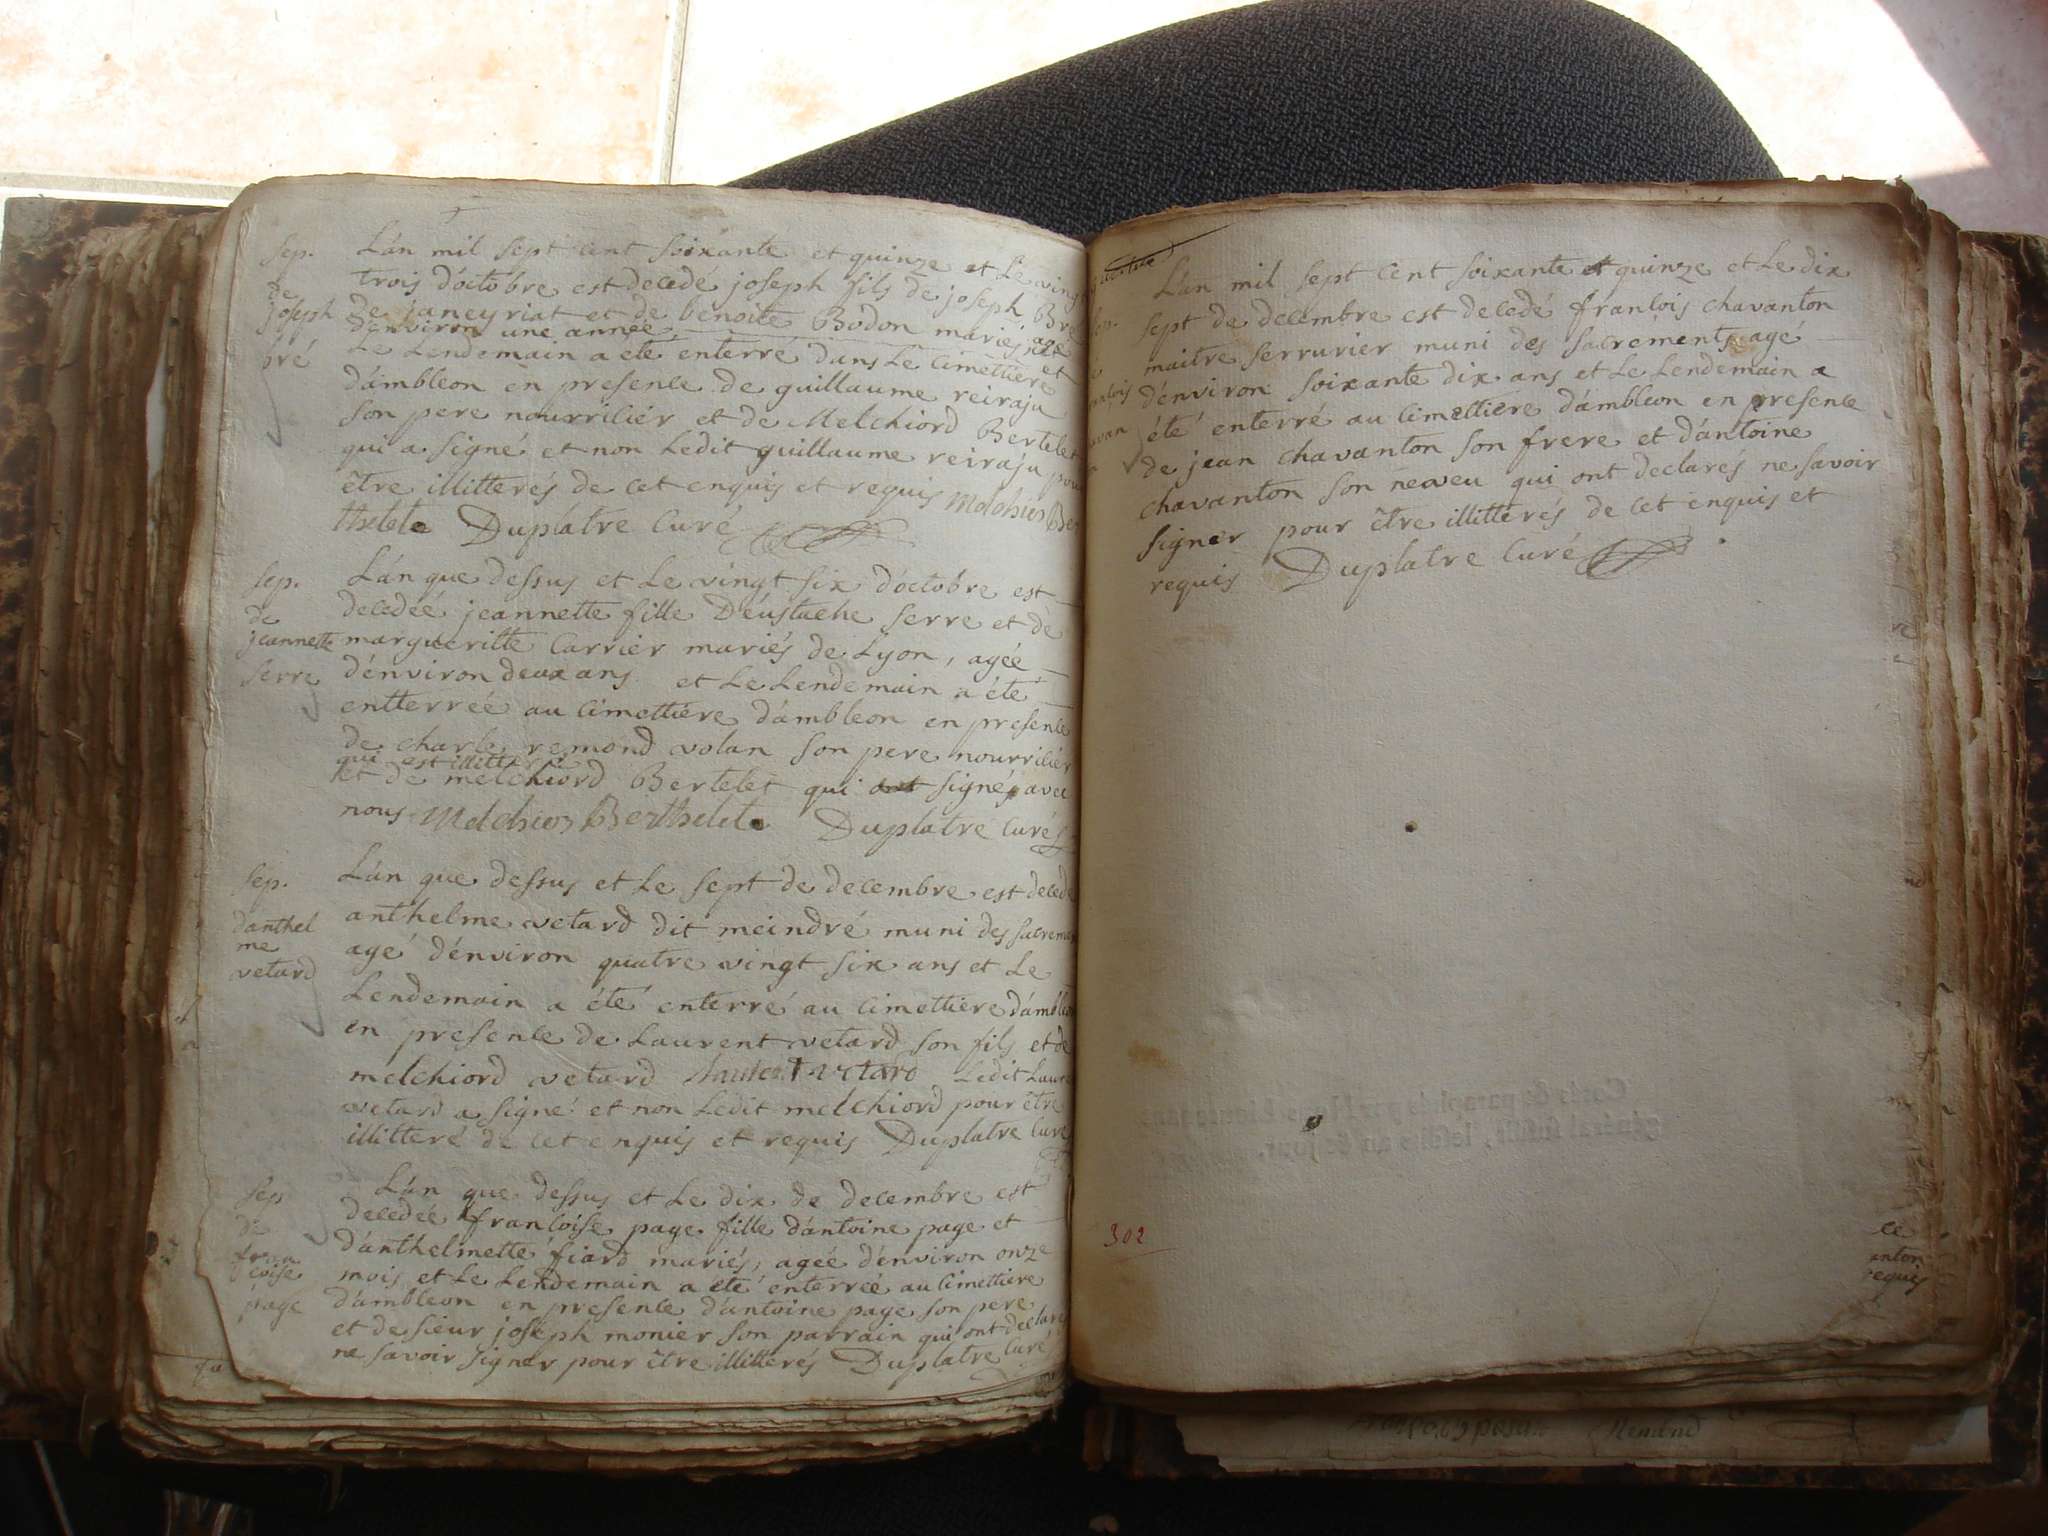 Sep.
de
joseph
bré
L'an mil sept cent soixante et quinze et Le vingt
trois d'octobre est decedé joseph fils de joseph Bré
de janeyriat et de benoite Bodon mariés, agé
d'environ une année et
Le Lendemain a été enterré dans Le cimettiere
d'ambleon en presence de guillaume reiraju
son pere nourricier et de Melchiord Bertelet
qui a signé et non Ledit guillaume reiraju pour
être illitterés de cet enquis et requis Melchior Ber
thelet Duplatre Curé
Sep.
de
jeannette
serre
L'an que dessus et Le vingt six d'octobre est
decedée jeannette fille D'eustache serre et de
margueritte Carrier mariés de Lyon, agée
d'environ deux ans et Le Lendemain a été
entterrée au cimettiére d'ambleon en presence
de charle remond volan son pere nourricier
qui est illitteré
et de melchiord Bertelet qui signé avec
nous Melchior Berthelet Duplatre Curé
Sep.
d'anthel
me
vetard
L'an que dessus et Le sept de decembre est decedé
anthelme vetard dit meindré muni des sacremen
agé d'environ quatre vingt six ans et Le
Lendemain a été enterré au cimettiere d'ambleon
en presence de Laurent vetard son fils et de
melchiord vetard Laurent vetard Ledit Laure
vetard a signé et non Ledit melchiord pour être
illitteré de cet enquis et requis Duplatre Curé
Sep
de
fran
coise
page
L'an que dessus et Le dix de decembre est
decedée francoise page fille d'antoine page et
d'anthelmette fiard mariés, agée d'environ onze
mois et Le Lendemain a été enterrée au cimettiere
d'ambleon en presence d'antoine page son pere
et de sieur joseph monier son parrain qui ont declarés
ne savoir signer pour être illitterés Duplatre Curé
L'an mil sept cent soixante et quinze et Le dix
sept de decembre est decedé francois chavanton
maitre serrurier muni des sacrements agé
d'environ soixante dix ans et Le Lendemain a
été enterré au cimettiere d'ambleon en presence
de jean chavanton son frere et d'antoine
chavanton son neveu qui ont declarés ne savoir
signer pour être illitterés de cet enquis et
requis Duplatre Curé
302
ce
anton
requis